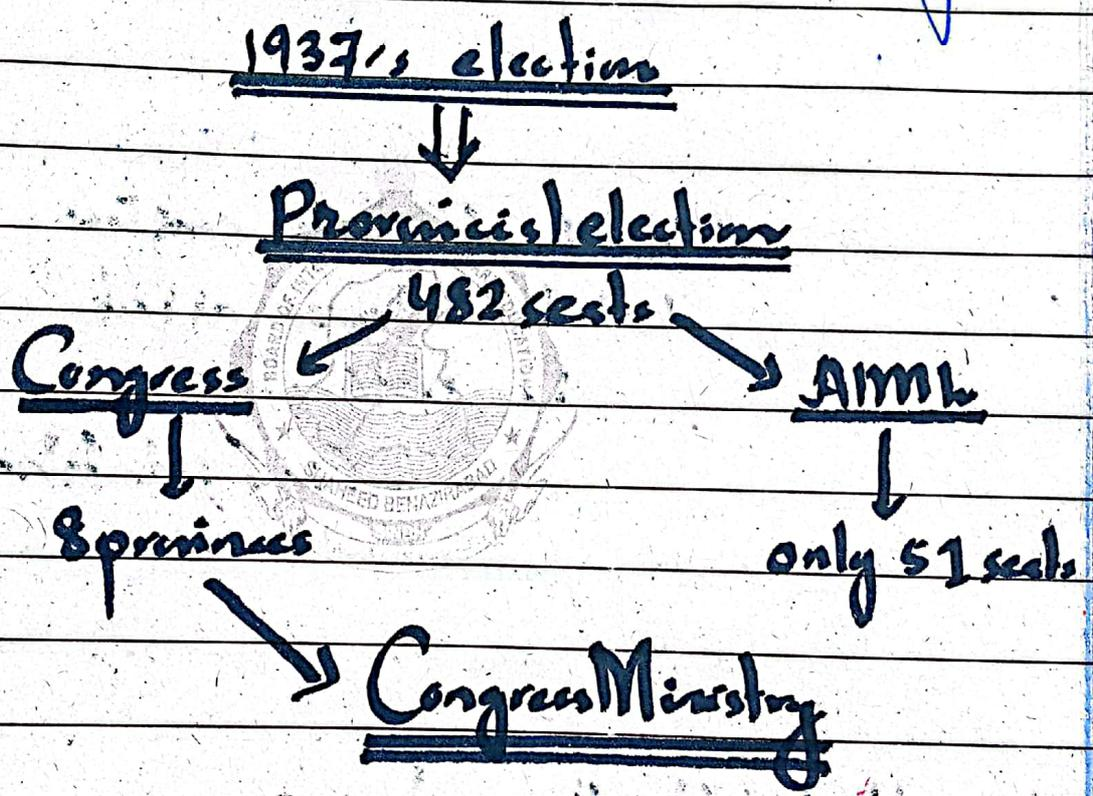 1937's election
Provincial election
482 seats
Congress
AIML
8 provinces
only 51 seats
Congress Ministry
SHAHEED BENAZIRABAD